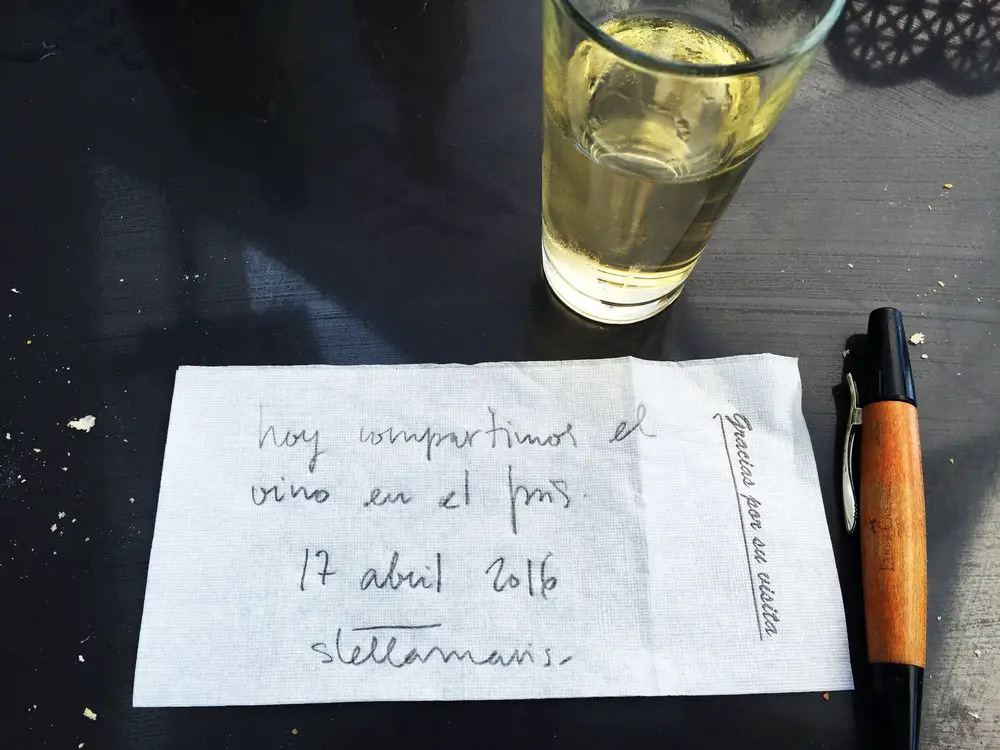 hoy compartimos el
vino en el país.
17 abril 2016
stellamaris.
Gracias por su visita